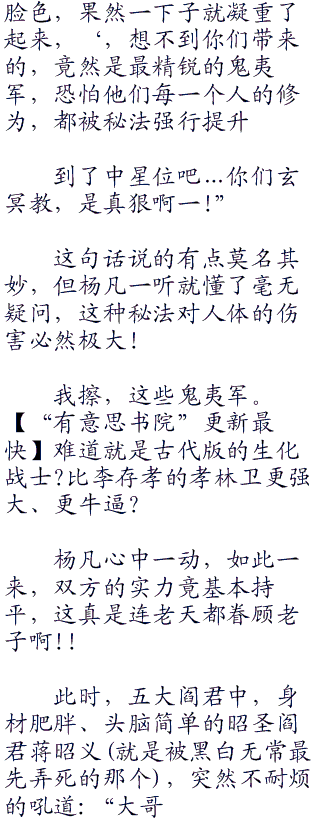 脸色，果然一下子就凝重了
起来，‘，想不到你们带来
的，竟然是最精锐的鬼夷
军，恐怕他们每一个人的修
为，都被秘法强行提升
到了中星位吧…你们玄
冥教，是真狠啊一！”
这句话说的有点莫名其
妙，但杨凡一听就懂了毫无
疑问，这种秘法对人体的伤
害必然极大！
我擦，这些鬼夷军。
【“有意思书院” 更新最
快】难道就是古代版的生化
战士?比李存孝的孝林卫更强
大、更牛逼?
杨凡心中一动，如此一
来，双方的实力竟基本持
平，这真是连老天都眷顾老
子啊!!
此时，五大阎君中，身
材肥胖、头脑简单的昭圣阎
君蒋昭义(就是被黑白无常最
先弄死的那个)，突然不耐烦
的吼道：“大哥